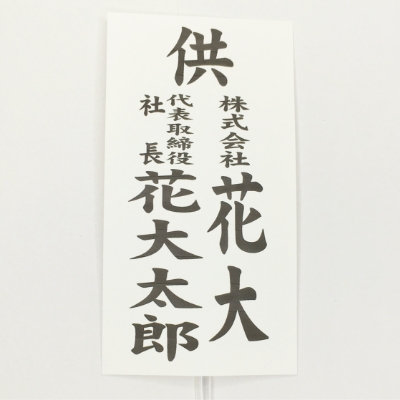 供
株式会社 花大
代表取締役
社長
花大太郎